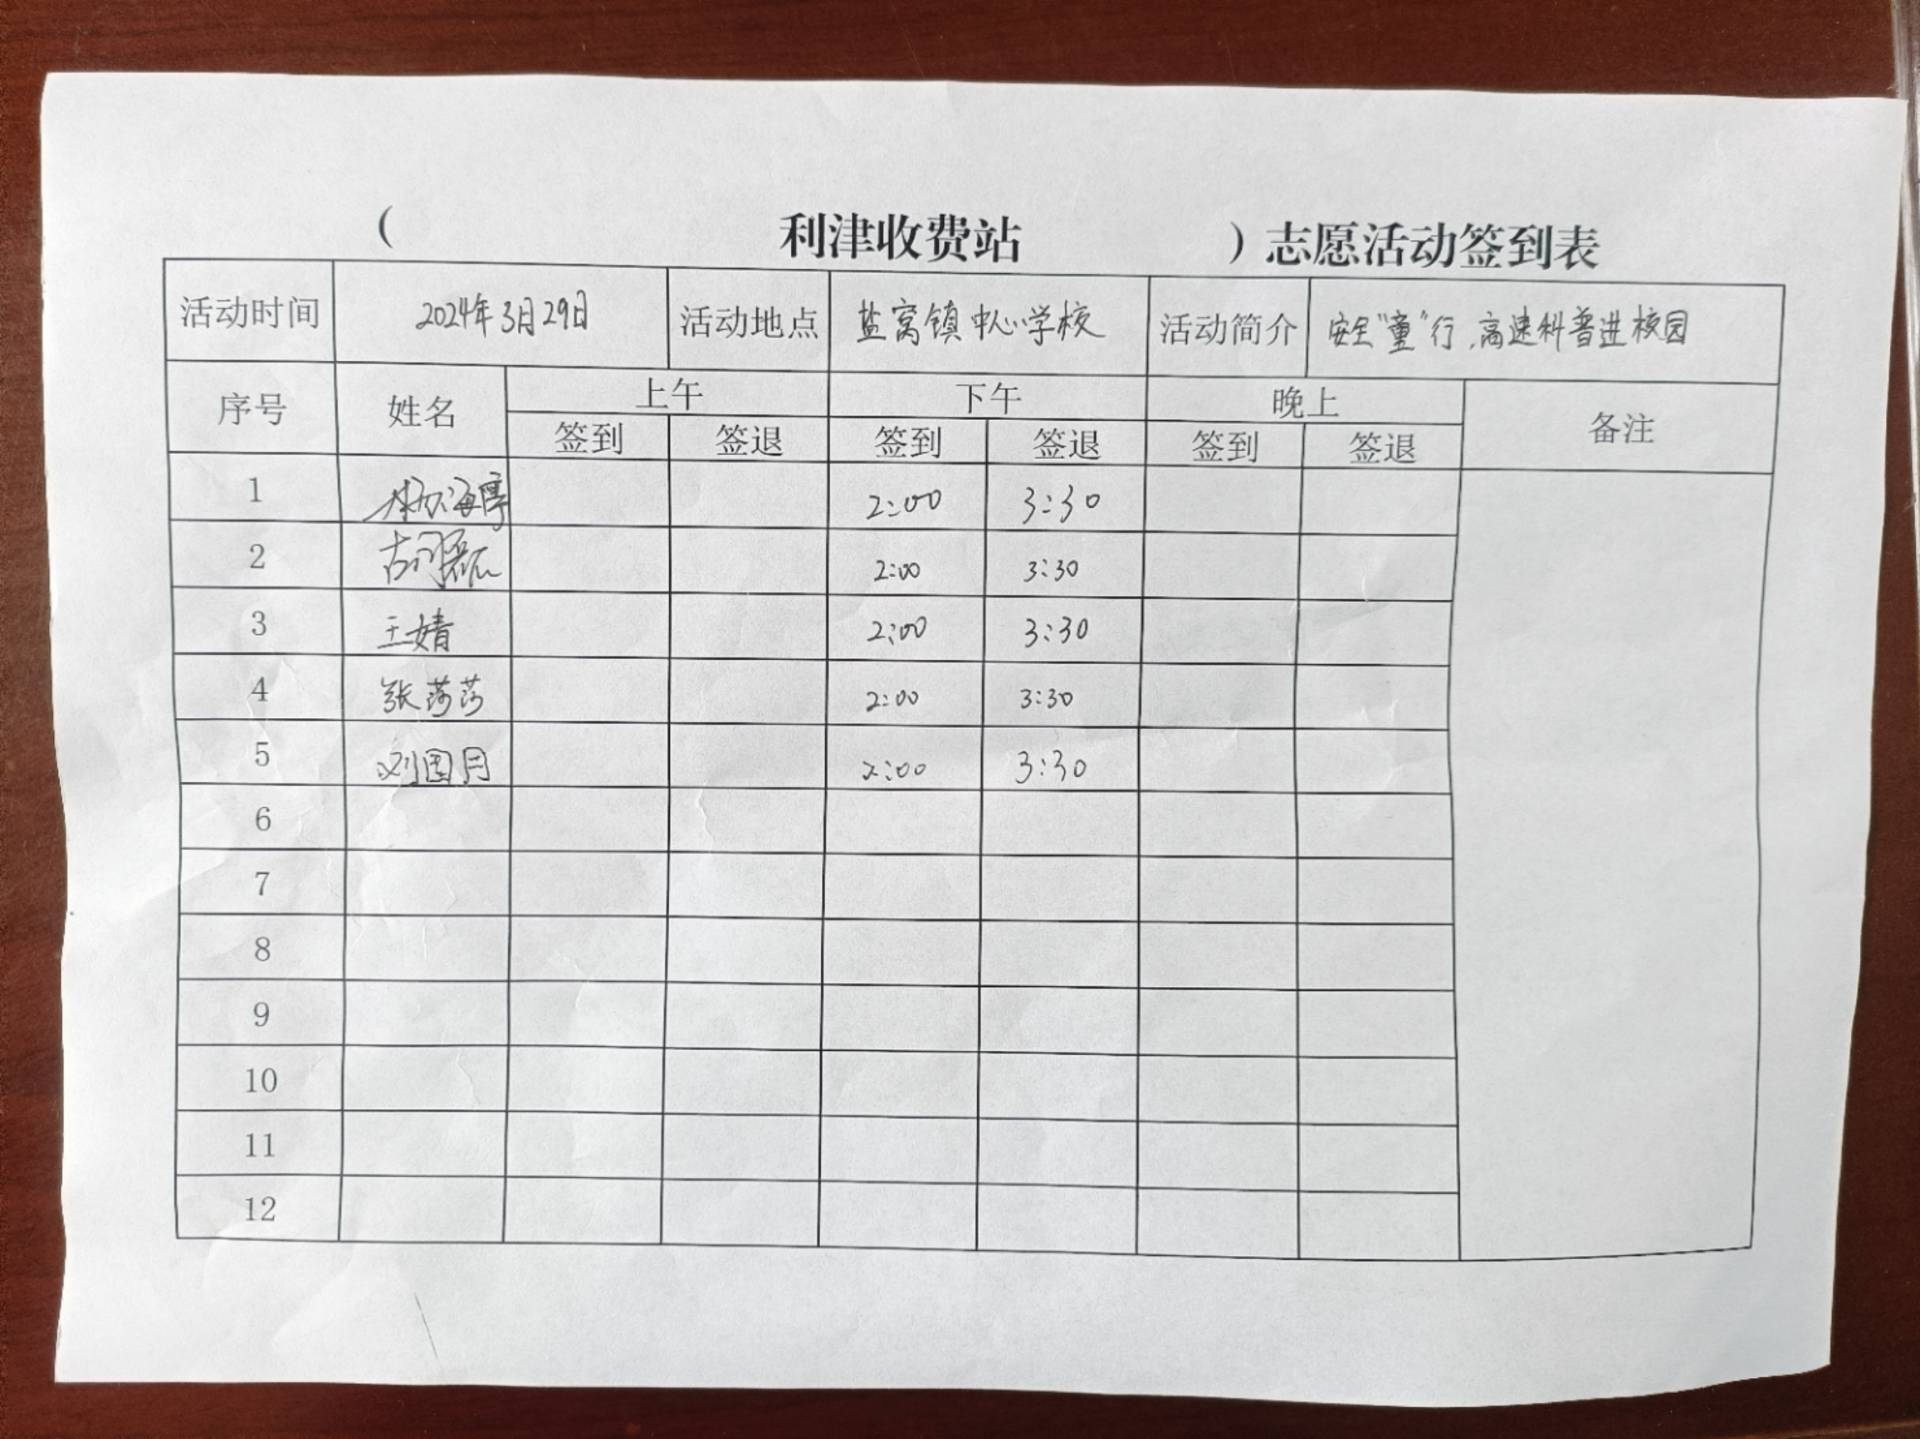 ( 利津收费站 ) 志愿活动签到表
活动时间 2024年3月29日 活动地点 盐窝镇中心学校 活动简介 安全"童"行,高速科普进校园
序号 姓名 上午 下午 晚上 备注
签到 签退 签到 签退 签到 签退
1 2:00 3:30
2 2:00 3:30
3 王婧 2:00 3:30
4 张莎莎 2:00 3:30
5 刘国月 2:00 3:30
6
7
8
9
10
11
12